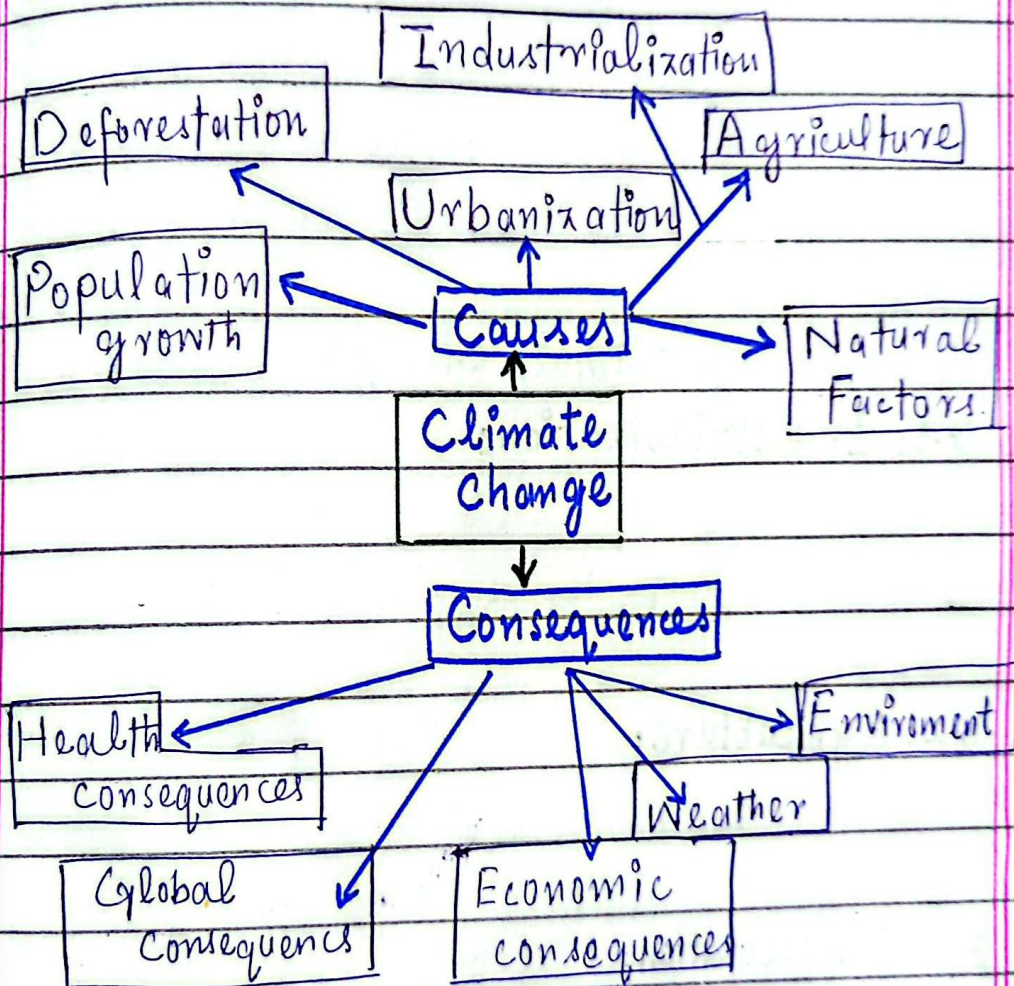 Industrialization
Deforestation
Agriculture
Urbanization
Population
growth
Causes
Natural
Factors.
Climate
change
Consequences
Health
consequences
Enviroment
Weather
Global
consequencs
Economic
consequences